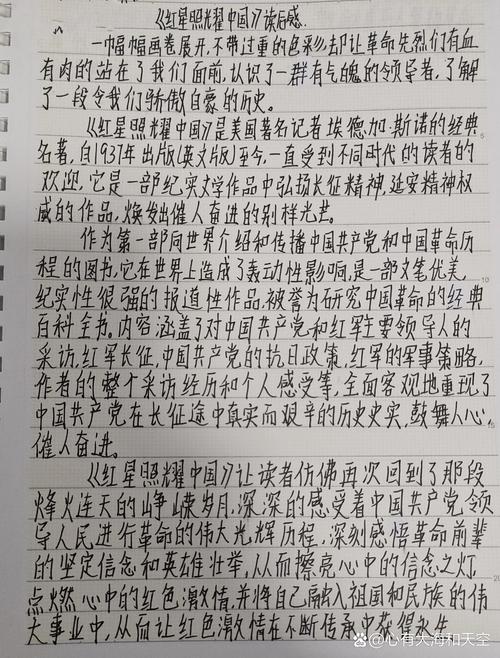 《红星照耀中国》读后感.
一幅幅画卷展开,不带过重的色彩,却让革命先烈们有血
有肉的站在了我们面前,认识了一群有气魄的领导者,了解
了一段令我们骄傲自豪的历史。
《红星照耀中国》是美国著名记者埃德加·斯诺的经典
名著,自1937年出版(英文版)至今,一直受到不同时代的读者的
欢迎,它是一部纪实文学作品中弘扬长征精神,延安精神权
威的作品,焕发出催人奋进的别样光芒。
作为第一部向世界介绍和传播中国共产党和中国革命历
程的图书,它在世界上造成了轰动性影响,是一部文笔优美
纪实性很强的报道性作品,被誉为研究中国革命的经典
百科全书。内容涵盖了对中国共产党和红军主要领导人的
采访,红军长征,中国共产党的抗日政策,红军的军事策略,
作者的整个采访经历和个人感受等,全面客观地重现了
中国共产党在长征途中真实而艰辛的历史史实,鼓舞人心,
催人奋进。
《红星照耀中国》让读者仿佛再次回到了那段
烽火连天的峥嵘岁月,深深的感受着中国共产党领
导人民进行革命的伟大光辉历程,深刻感悟革命前辈
的坚定信念和英雄壮举,从而擦亮心中的信念之灯,
点燃心中的红色激情,并将自己融入祖国和民族的伟
大事业中,从而让红色激情在不断传承中获得永生
10
20
@心有大海和天空